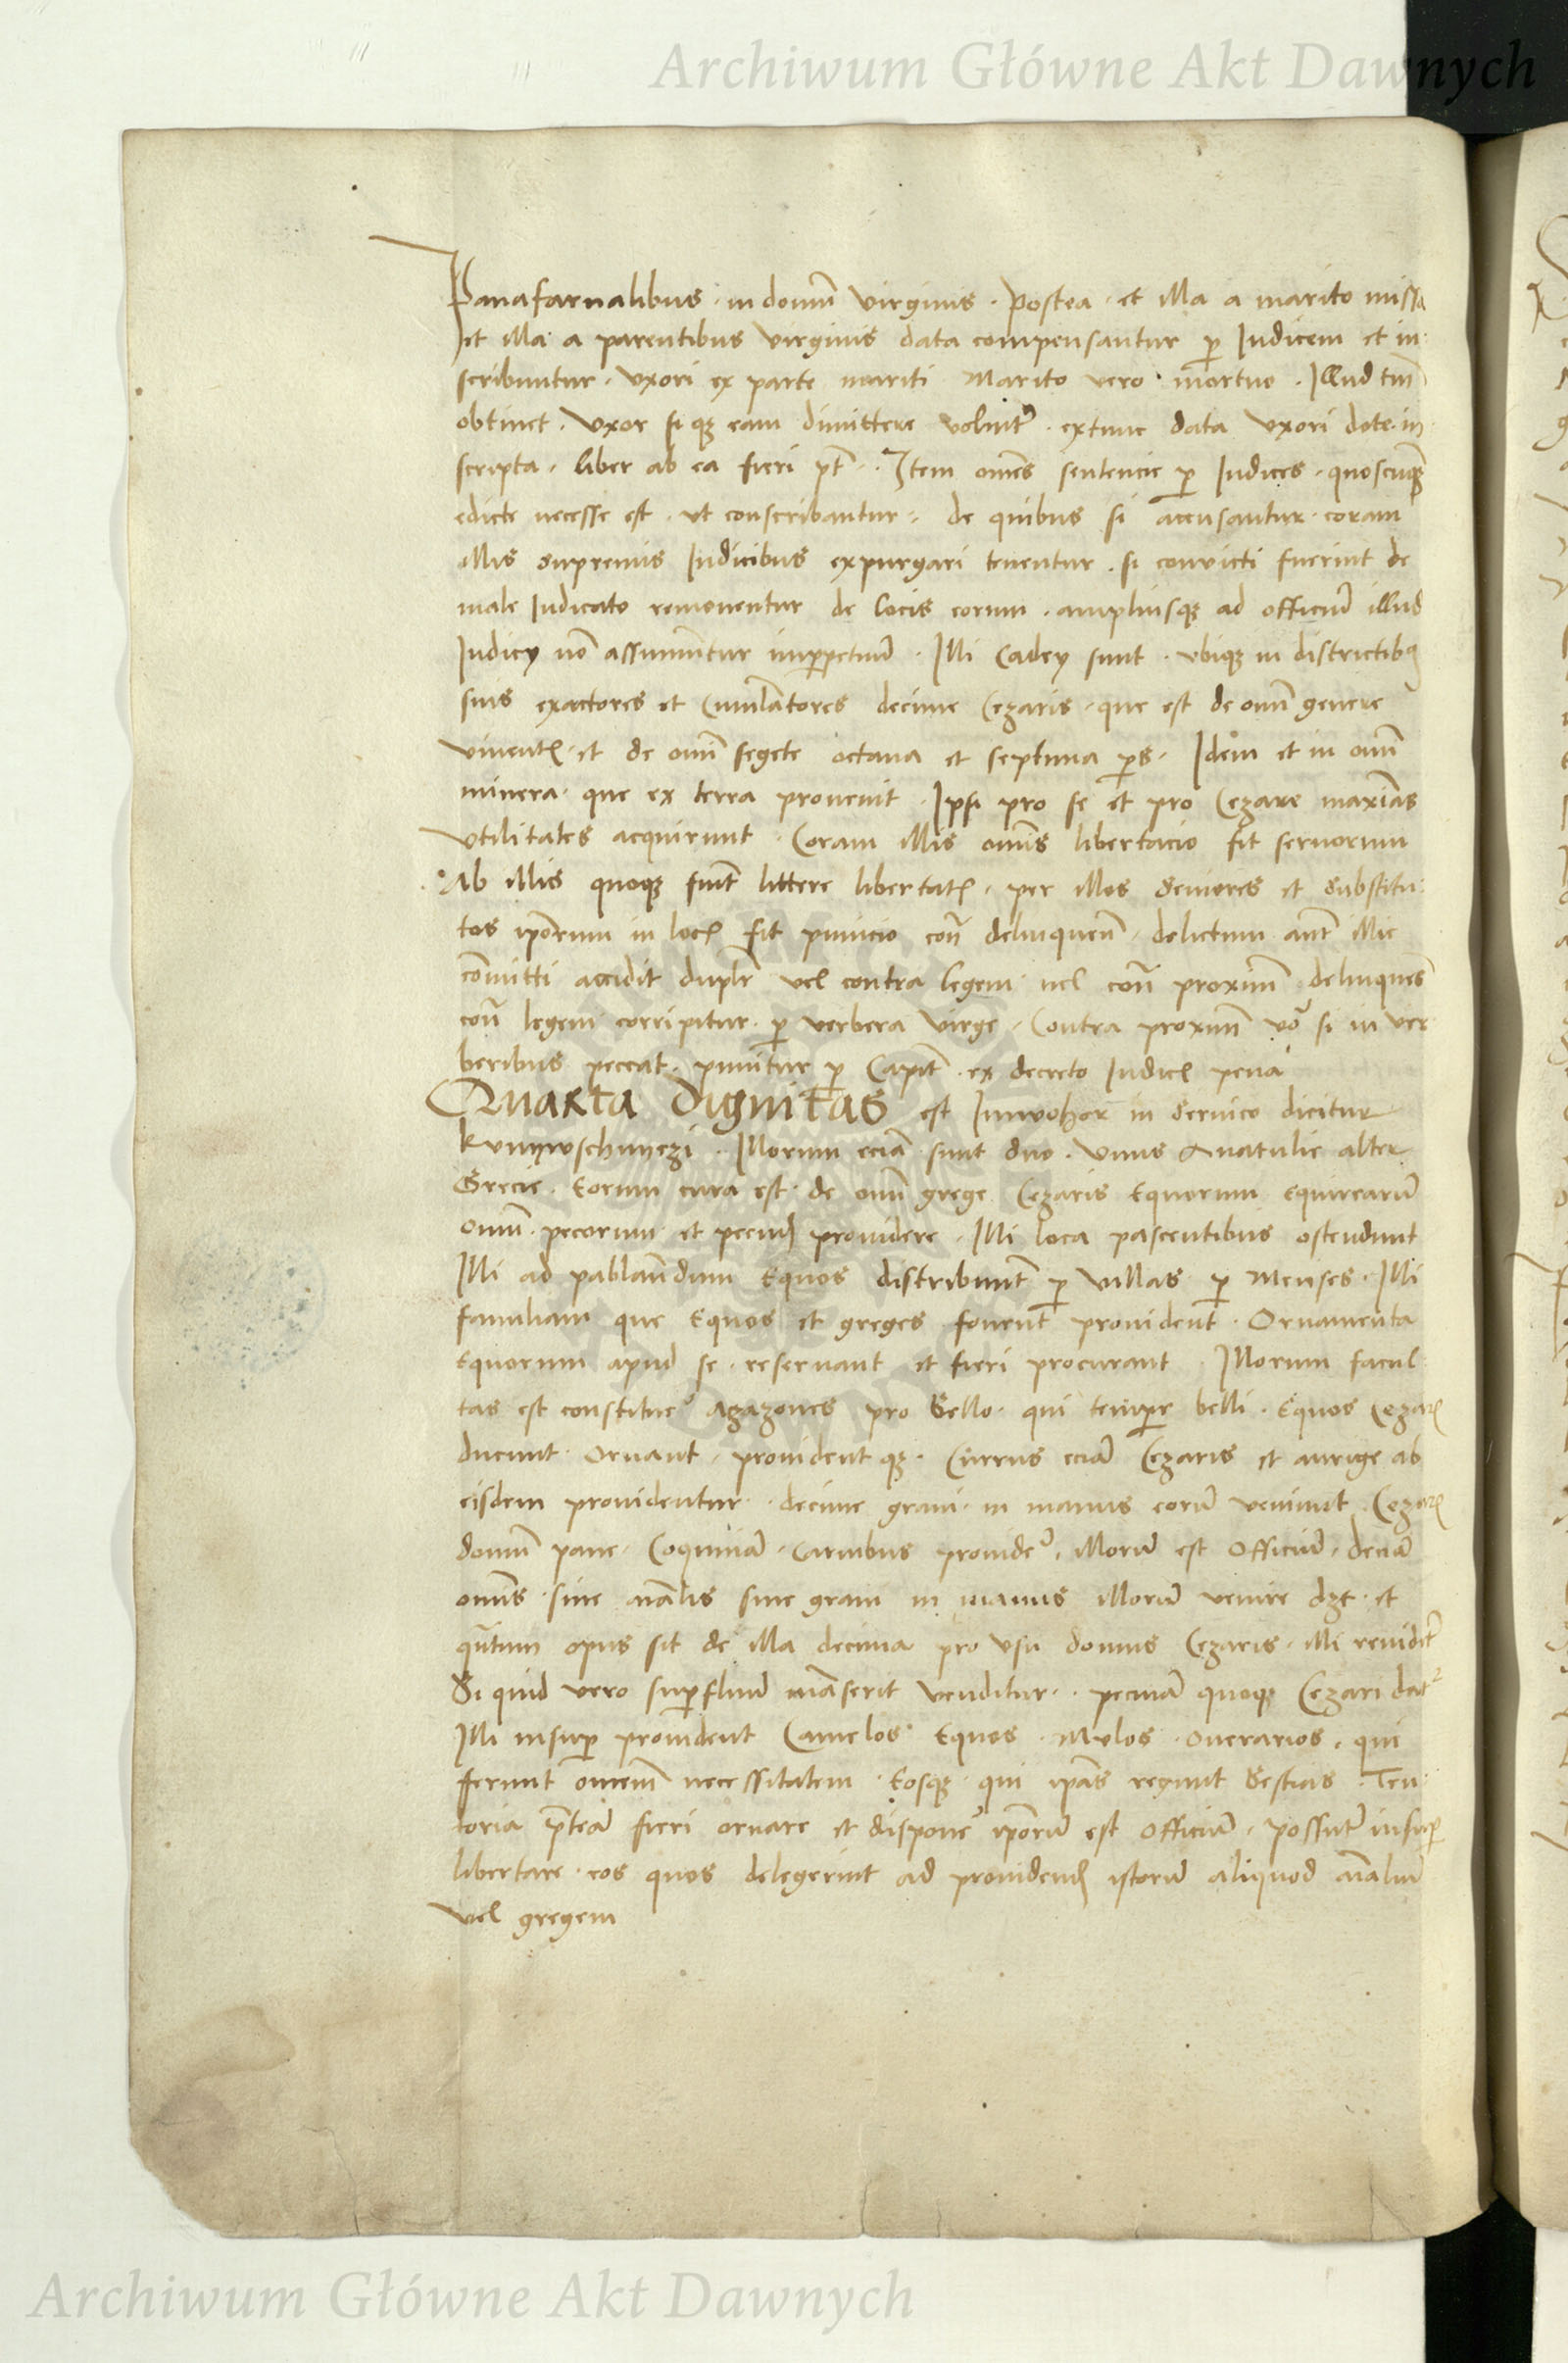 Archiwum Główne Akt Dawnych
Panafarnalibus · in domū virginis · postea · et illa a marito missa
et illa a parentibus virginis data compensantur p̱ Iudicem et in
scribuntur · vxori ex parte mariti · Marito vero · mortuo · Illud tm̄
obtinet · vxor si qꝫ eam dimittere voluit᾽ · extunc data vxori dote in
scripta · liber ab ea fieri pt̄ · Item om̄es sentencie p̱ Iudices · quoscūqꝫ
edicte necesse est · vt conscribantur · de quibus si accusantur · coram
illis supremis Iudicibus expurgari tenentur · si convicti fuerint de
male Iudicato remouentur de locis eorum · ampliusqꝫ ad officiū illud
Iudicy nō assumūtur imp̱petuū · Illi Cadey sunt · vbiqꝫ in districtibꝰ
suis exactores et Cumlatores decime Cezaris · que est de omī genere
viventꝭ · et de omī segete octaua et septima ps · Idem et in omī
minera · que ex terra prouenit · Ipsi pro se et pro Cezare maxīas
vtilitates acquirunt · Coram illis om̄is libertacio fit seruorum
Ab illis quoqꝫ fiūt littere libertatꝭ · per illos seniores et substitu
tos ipōrum in locꝭ fit punicio cōn̄ delinquen̄ · delictum aūt illic
cōmitti accidit duplr̄ vel contra legem · vel con̄ proximū · delinquēs
con̄ legem corripitur · p̱ verbera virge · Contra proximū vo᾽ si in ver
beribus peccat · punitur p̱ Capit̄ · ex decreto Iudicꝭ pena
Quarta Dignitas est Imrohor in servico dicitur
Illorum eciā sunt duo · Vnus Anatulie alter
Grecie · Eorum cura est · de omī grege Cezaris Equorum equirearū
omī · pecorum · et pecudꝭ prouidere · Illi loca pascentibus ostendunt
Illi ad pablandum Equos distribuūt p̱ villas p̱ Menses · Illi
familiam que Equos et greges fouent prouident · Ornamenta
Equorum apud se · reseruant et fieri procurant · Illorum facul
tas est constitue᾽ Agazones pro Bello · qui temp̱e belli · Equos Cezarꝭ
ducunt · ornant · prouidentqꝫ · Currus eciā Cezaris et aurige ab
eisdem prouidentur · decime grani · in manus eorū veniūt Cezarꝭ
domū pane · Coquinā · carnibus prouide᾽ · illorū est Officiū · deciā
om̄is · siue aīalis siue grani in manus illorū venire dꝫt · et
qūtum opus sit de illa decima pro vsu domus Cezaris · illi
Si quid vero sup̱fluū māserit venditur · pecuniā quoqꝫ Cezari dat᾽
Illi insup̱ prouident Camelos · Equos · Mulos · onerarios · qui
ferunt om̄em necessitatem · Eosqꝫ · qui ipās regunt Bestias · Ten
toria p̄teā fieri ornare et dispone᾽ ipōrū est officiū · possūt insup̱
libertare · eos quos delegerint ad prouidendꝭ istorū aliquod aīaliū
vel gregem
Archiwum Główne Akt Dawnych